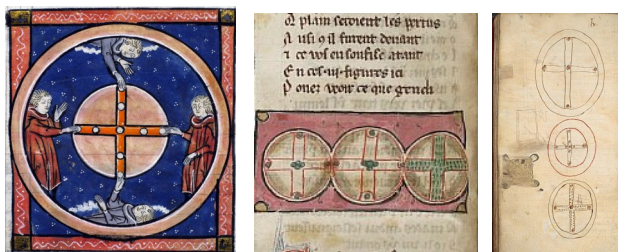 plain seroient les pertus
A usi q il furent deuant
ce vos en soufise atant
E n ces .iij. figures ici
P oues veoir ce que